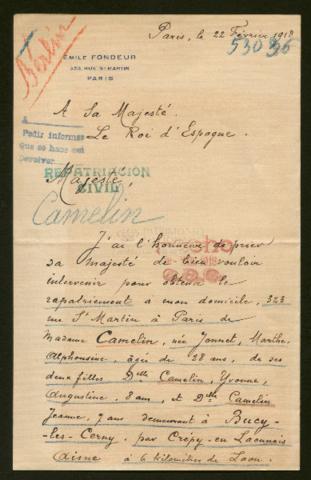 Berlin
Paris, le 22 Février 1918
53036
EMILE FONDEUR
323, RUE ST-MARTIN
PARIS
A Sa Majesté
Le Roi d'Espagne.
A
Pedir informes
Que se hace así
REPATRIACION
CIVIL
Majesté,
Camelin
J'ai l'honneur de prier
sa majesté de bien vouloir
intervenir pour obtenir le
rapatriement à mon domicile, 323
rue St Martin à Paris de
Madame Camelin, née Jonnet, Marthe,
Alphonsine, âgée de 28 ans, de ses
deux filles Dlle Camelin, Yvonne,
Augustine, 8 ans, et Dlle Camelin
Jeanne, 7 ans demeurant à Bucy-
les-Cerny, par Crépy-en Laonnois
Aisne à 6 kilomètres de Laon.